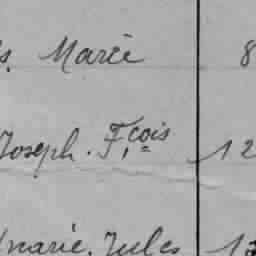 s. Marie 8
Joseph. F.çois 12
marie. Jules